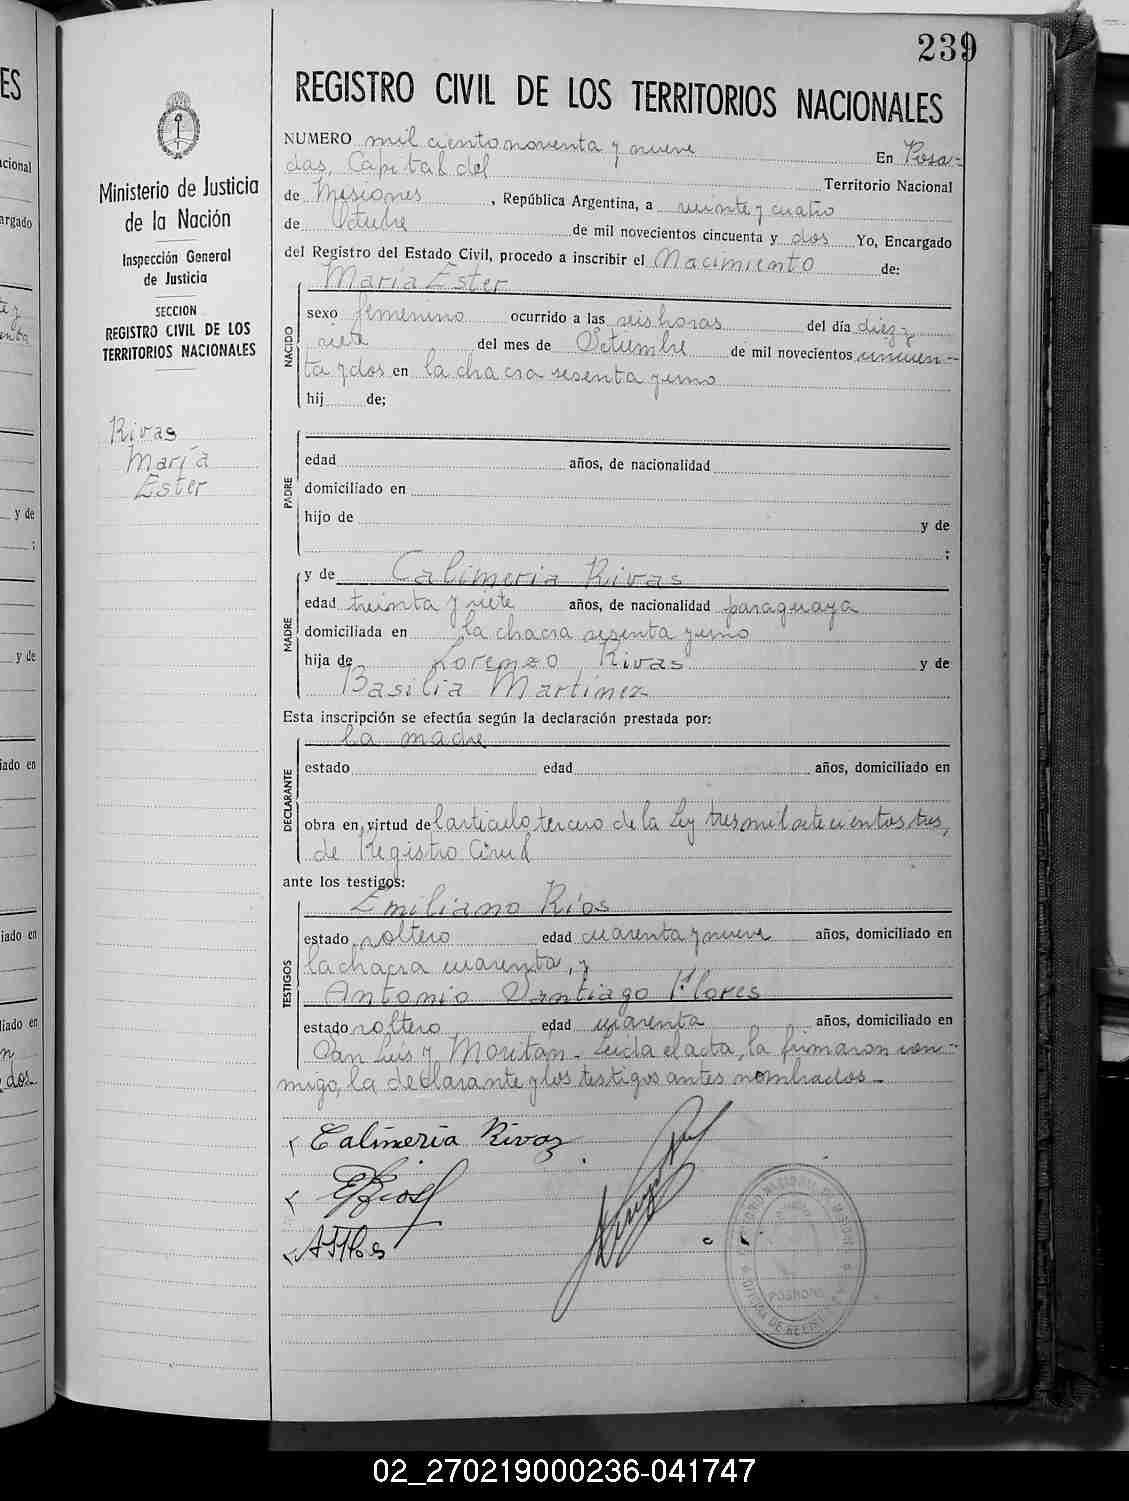 239
REGISTRO CIVIL DE LOS TERRITORIOS NACIONALES
Ministerio de Justicia
de la Nación
Inspección General
de Justicia
SECCION
REGISTRO CIVIL DE LOS
TERRITORIOS NACIONALES
Rivas
María
Ester
NUMERO mil ciento noventa y nueve En Posa-
das, Capital del Territorio Nacional
de Misiones, República Argentina, a veinte y cuatro
de Octubre de mil novecientos cincuenta y dos Yo, Encargado
del Registro del Estado Civil, procedo a inscribir el Nacimiento de:
María Ester
NACIDO
sexo femenino ocurrido a las seis horas del día diez y
siete del mes de Setiembre de mil novecientos cincuen-
ta y dos en la chacra sesenta y uno
hij de;
PADRE
edad años, de nacionalidad
domiciliado en
hijo de y de
;
MADRE
y de Calimeria Rivas
edad treinta y siete años, de nacionalidad paraguaya
domiciliada en la chacra sesenta y uno
hija de Lorenzo Rivas y de
Basilia Martinez
Esta inscripción se efectúa según la declaración prestada por:
la madre
DECLARANTE
estado edad años, domiciliado en
obra en virtud del artículo tercero de la Ley tres mil setecientos tres,
de Registro Civil
ante los testigos:
Emiliano Ríos
TESTIGOS
estado soltero edad cuarenta y nueve años, domiciliado en
la chacra cuarenta, y
Antonio Santiago Flores
estado soltero edad cuarenta años, domiciliado en
San Luis y Moritán. Leida el acta, la firmaron con-
migo, la declarante y los testigos antes nombrados.
Calimeria Rivas
E Rios
02_270219000236-041747